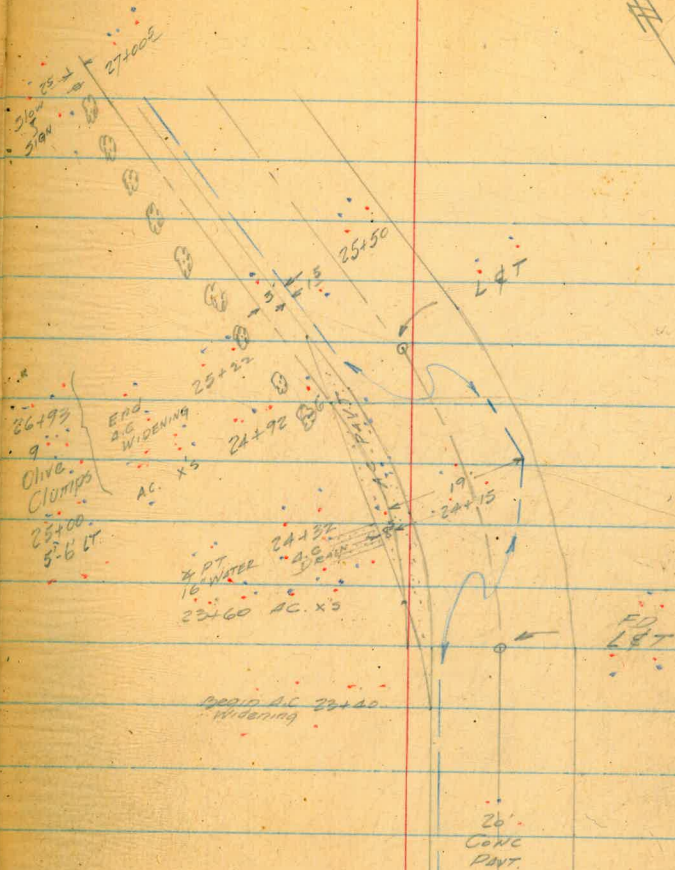 27+005
25
Slow
5
SIGN
25+50
L & T
15
3'
25+22
26+93
9
Olive
Clumps
25+00
5'-6' LT.
End
A.C
WIDENING
24+92
6
A.C. PAVT.
AC. X'S
19
24+15
24+32
A.C.
Drain
8
PT
16" WATER
23+60 AC. X'S
FD.
L & T
Begin A.C 23+40
Widening
20'
CONC
PAVT.